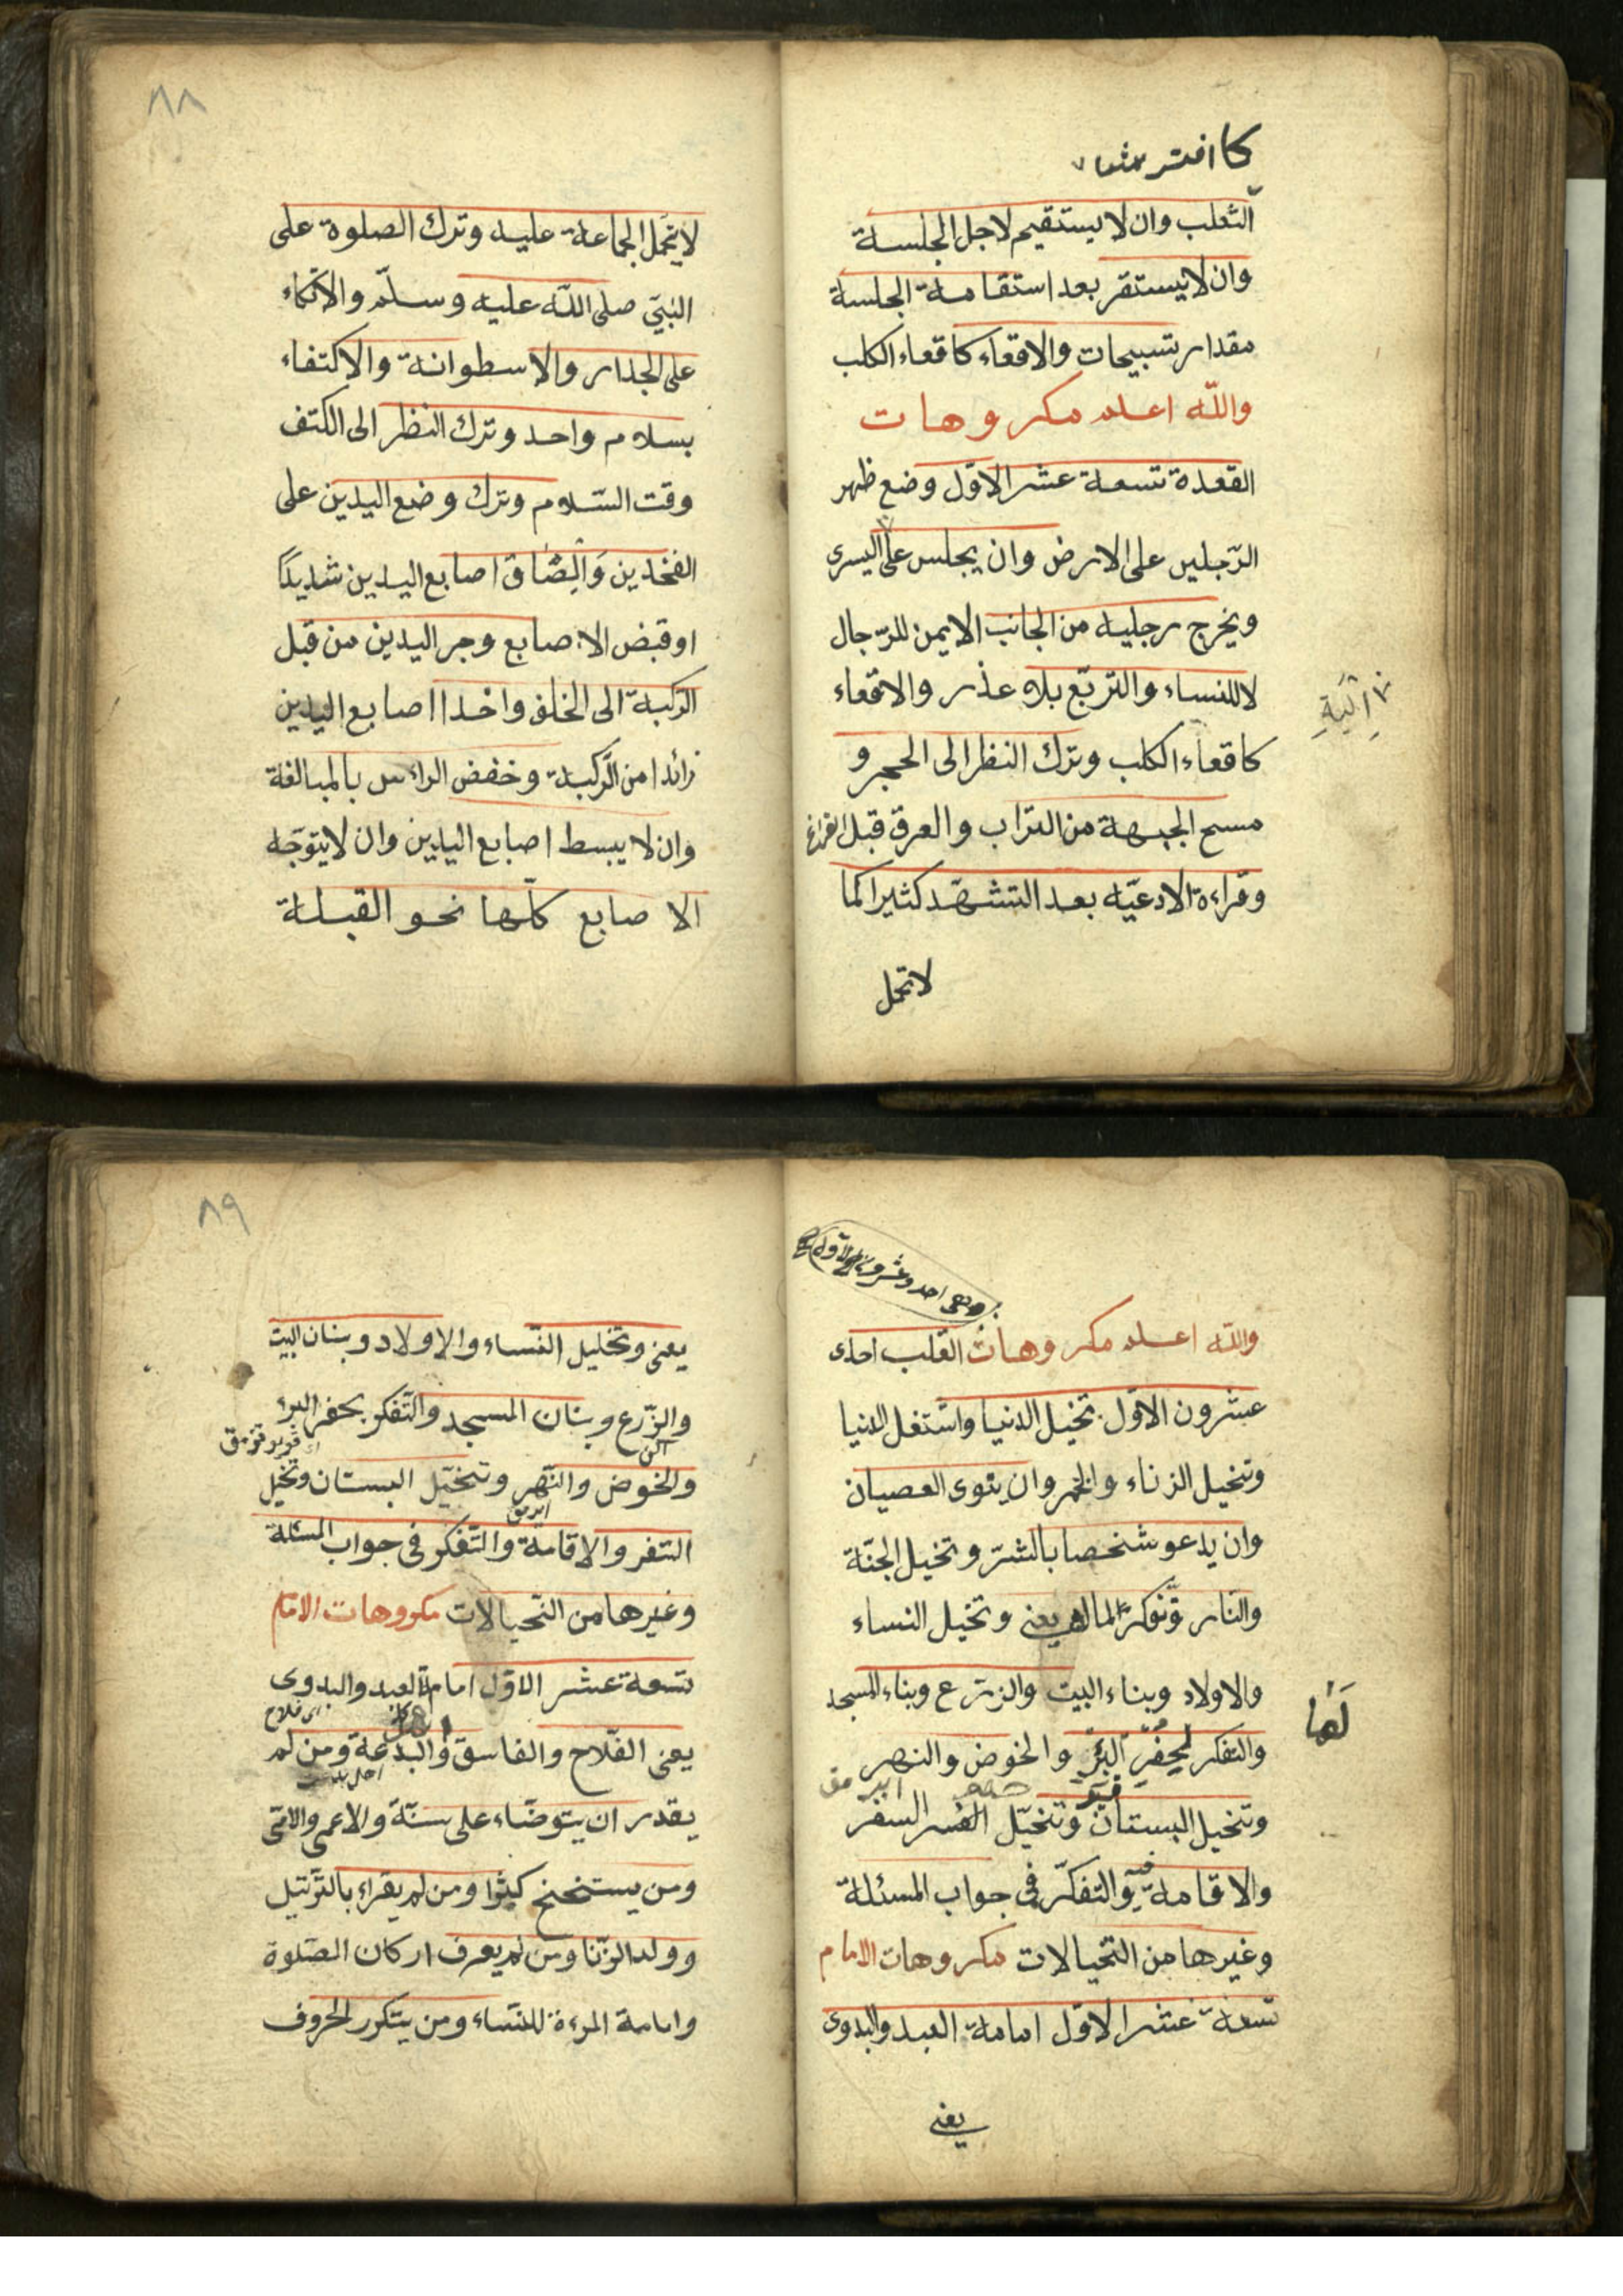 ٨٨
كا افتر
الثعلب وان لا يستقيم لاجل الجلسة
وان لا يستقر بعد استقامة الجلسة
مقدار تسبيحات والاقعاء كاقعاء الكلب
والله اعلم مكروهات
القعدة تسعة عشر الاوّل وضع ظهر
الرّجلين على الارض وان يجلس على اليسرى
ويخرج رجليه من الجانب الايمن للرّجال
لا للنساء والتربّع بلا عذر والاقعاء
كاقعاء الكلب وترك النظر الى الحجر و
مسح الجبهة من التراب والعرق قبل الفراغ
وقراءة الادعيّه بعد التشهّد كثيرا كما
لا تحمل
اَلْيَةِ
لا يتحمل الجماعة عليه وترك الصلوة على
النبيّ صلى اللّه عليه وسلّم والاتكاء
على الجدار والاسطوانة والاكتفاء
بسلام واحد وترك النظر الى الكتف
وقت السّلام وترك وضع اليدين على
الفخذين وَاِلصَاق اصابع اليدين شديدًا
او قبض الاصابع وجر اليدين من قبل
الرّكبة الى الخلف واخذ اصابع اليدين
زائدا من الرّكبة وخفض الراءس بالمبالغة
وان لا يبسط اصابع اليدين وان لا يتوجّه
الاصابع كلّها نحو القبلة
٨٩
وهى احد وعشرون الاول
واللّه اعلم مكروهات القلب احدى
عشرون الاوّل تخيل الدنيا واشتغل الدنيا
وتخيل الزناء والخمر وان ينوى العصيان
وان يدعو شخصا بالشرّ وتخيل الجنّة
والنار وتفكر المال يعنى وتخيل النساء
والاولاد وبناء البيت والزرع وبناء المسجد
والتفكر لحِفَرِ البئرِ والخوض والنهر
وتخيل البستان وتخيّل السفر
والاقامة والتفكّر فى جواب المسئلة
وغيرها من التخيالات مكروهات الامام
تسعة عشر الاوّل امامة العبد والبدوى
يعنى
لَها
يعنى وتخليل النّساء والاولاد وبنان البيت
والزّرع وبنان المسجد والتّفكر بحفر البئر
والخوض والنّهر وتخيّل البستان وتخيل
السّفر والاقامة والتّفكر فى جواب المسئلة
وغيرها من التّخيالات مكروهات الامام
تسعة عشر الاوّل امامة العبد والبدوى
يعنى الفلّاح والفاسق والبدعة ومن لم
يقدر ان يتوضّاء على سنّة والاعمى والامّى
ومن يستخنح كثيرا ومن لم يقراء بالترتيل
وولد الزّنا ومن لم يعرف اركان الصّلوة
وامامة المرءة للنّساء ومن يتكرر الحروف